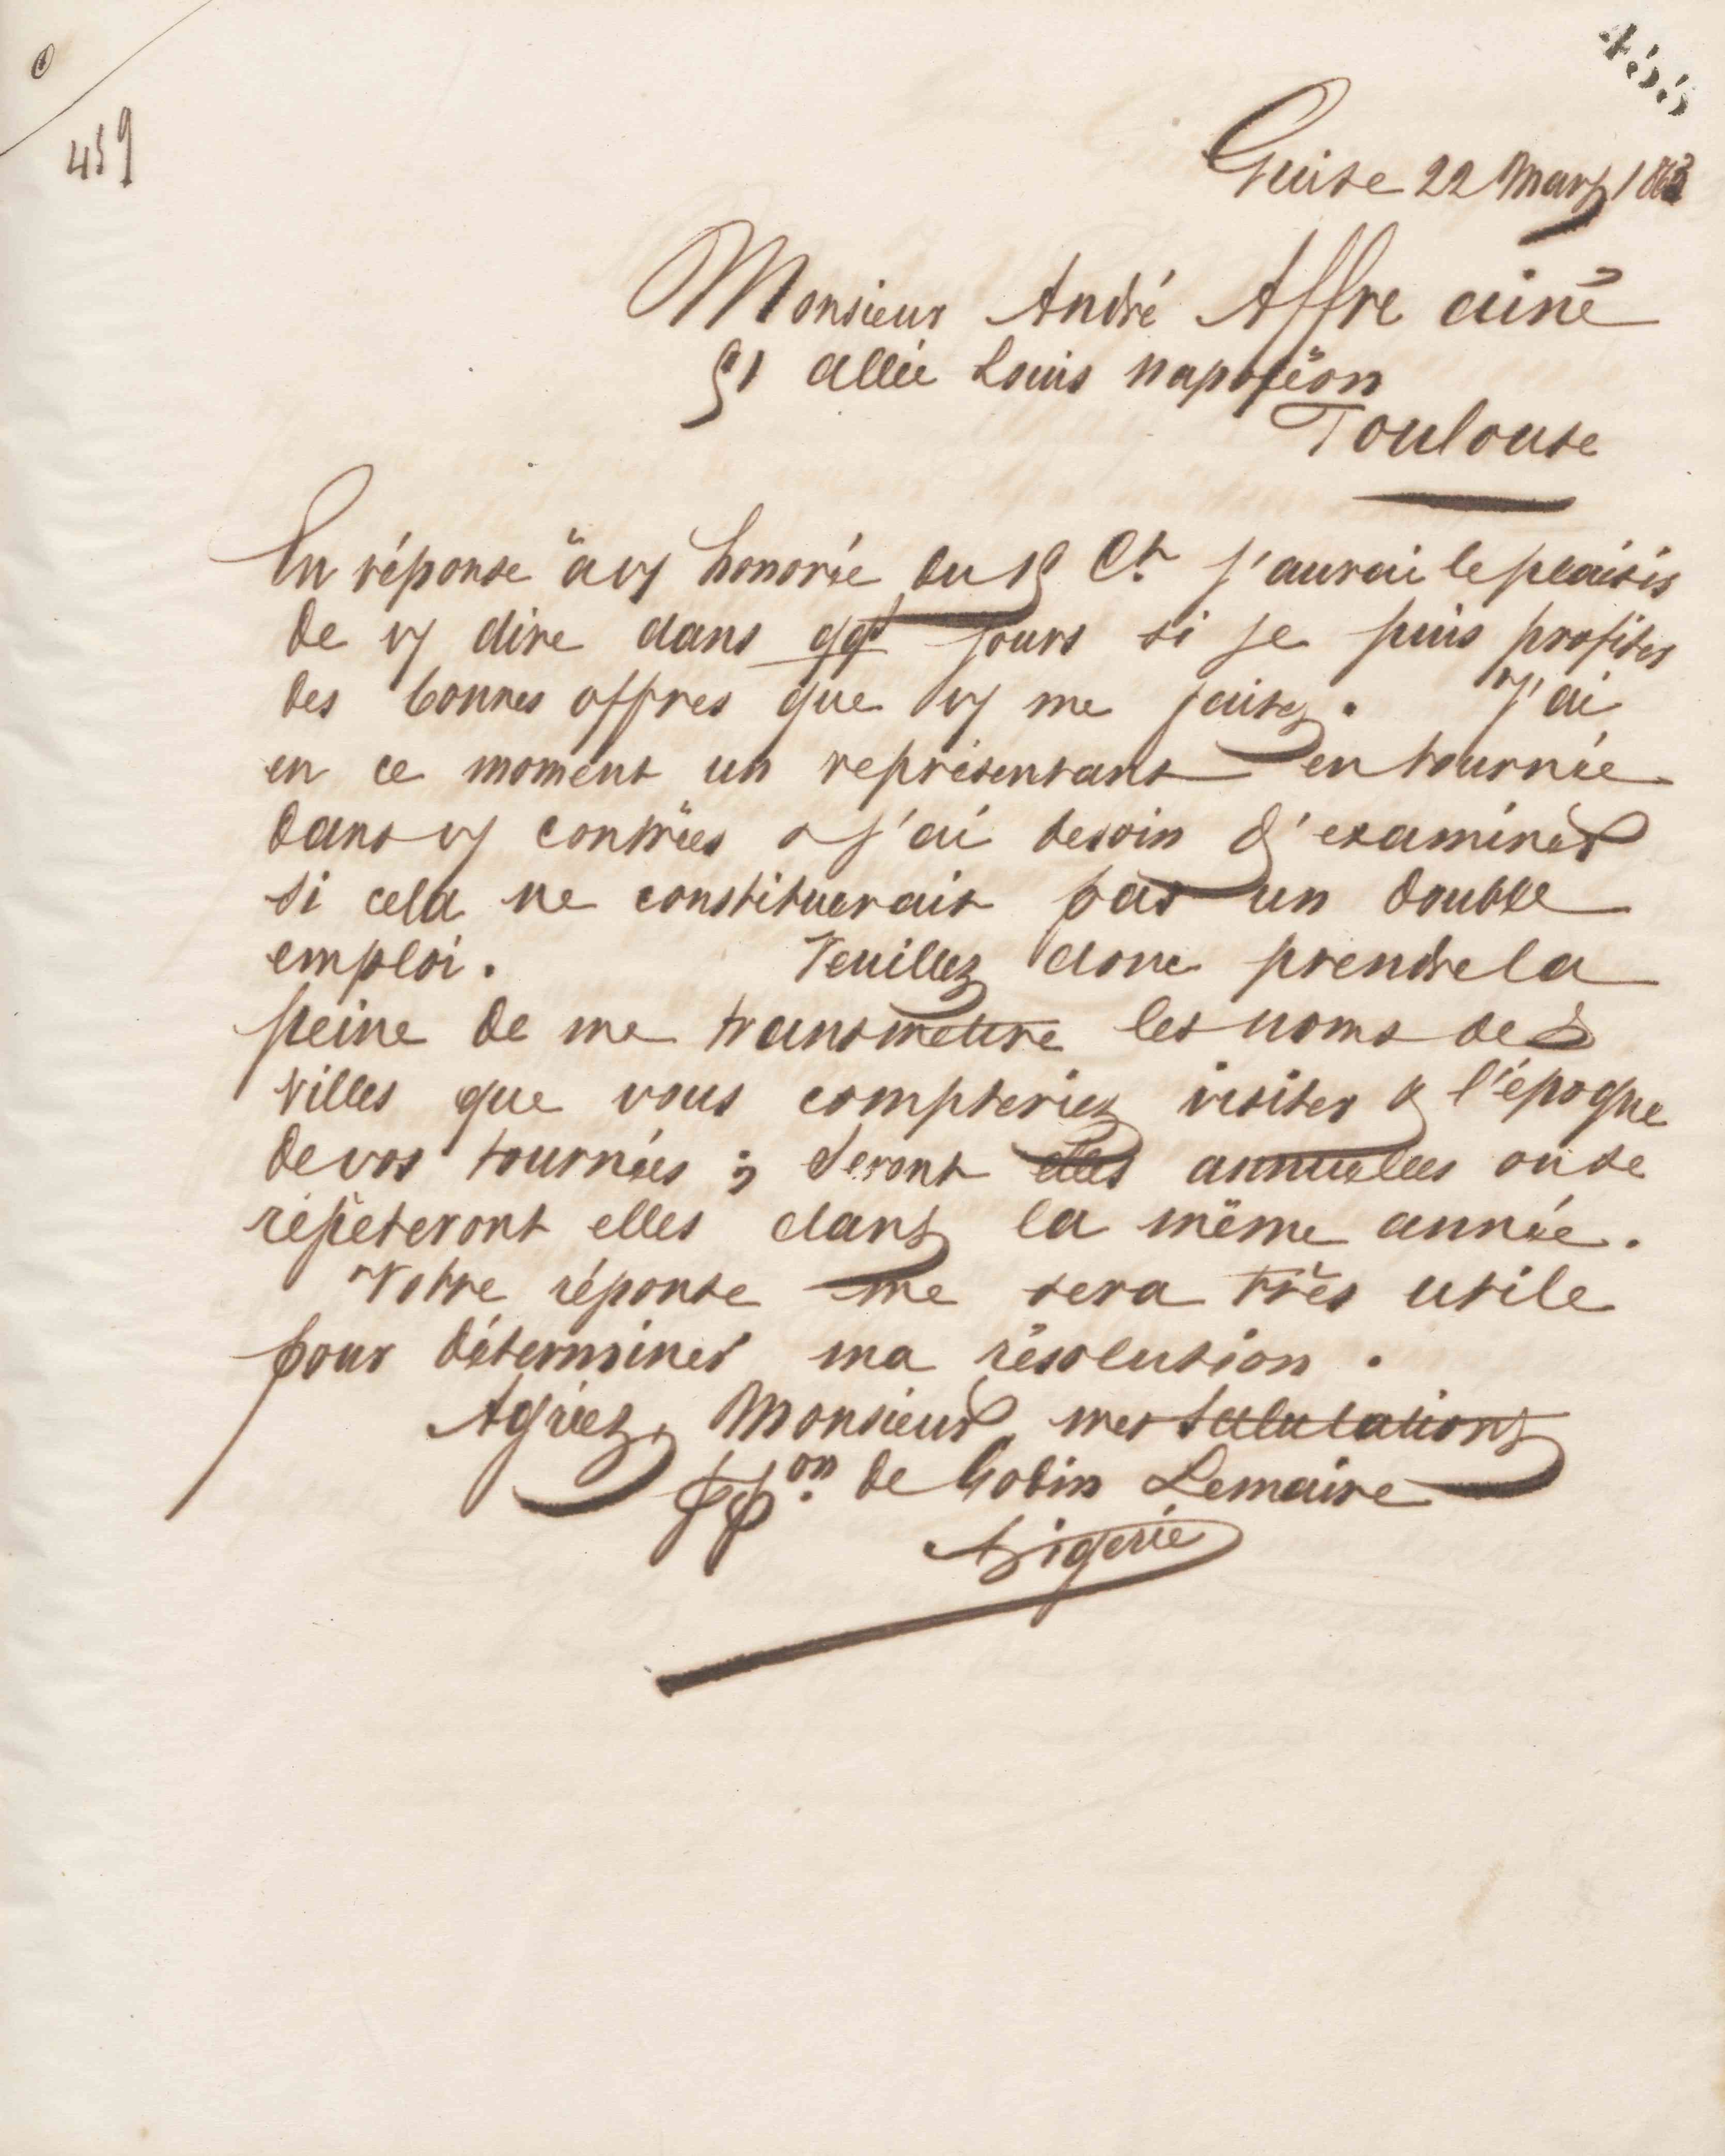 455
459
Guise 22 Mars 1863
Monsieur André Affre ainé
51 allée Louis napoléon
Toulouse
En réponse à vs honorée du 19 Ct j'aurai le plaisir
de vs dire dans qqs jours si je puis profiter
des bonnes offres que vs me faites. J'ai
en ce moment un représentant en tournée
dans vs contrées & j'ai besoin d'examiner
si cela ne constituerait pas un double
emploi. Veuillez donc prendre la
peine de me transmettre les noms des
villes que vous compteriez visiter & l'époque
de vos tournées ; seront elles annuelles ou se
répèteront elles dans la même année.
Votre réponse me sera très utile
pour déterminer ma résolution.
Agréez, Monsieur, mes salutations
ppon de Godin Lemaire